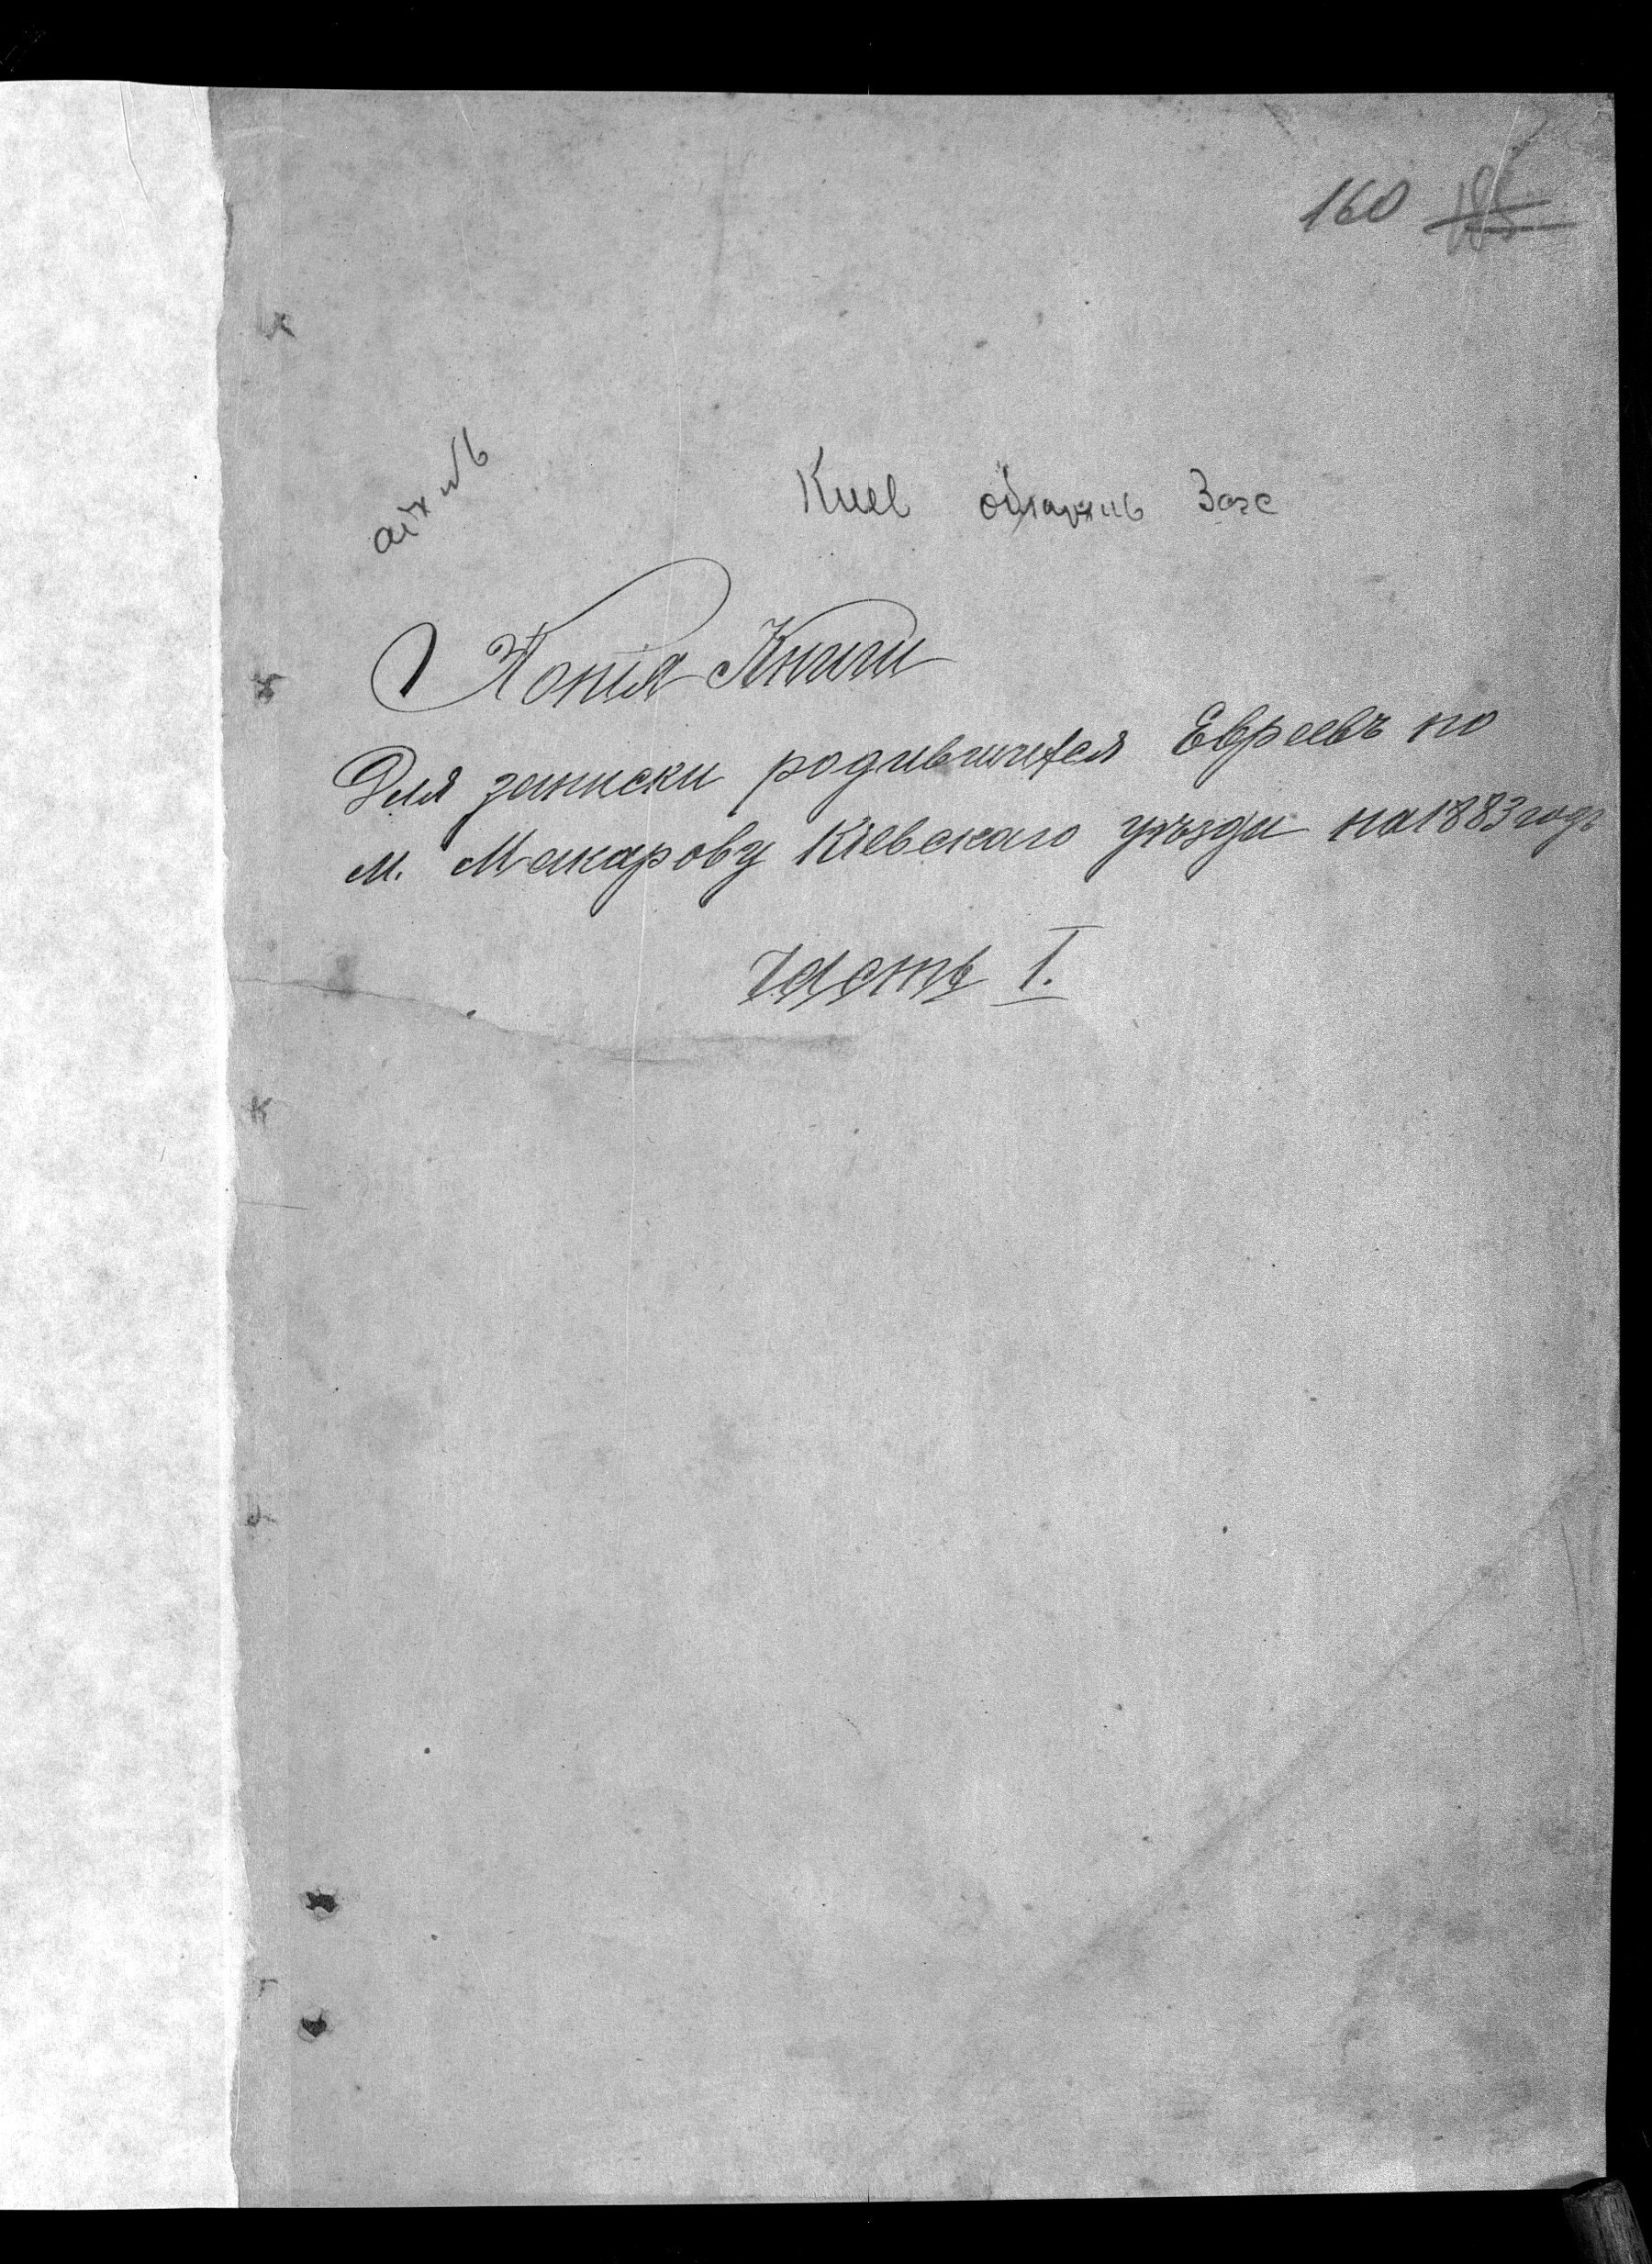 160 185
Киев Загс
Копія Книги
Для записки родившихся Евреевъ по
м. Макарову Кіевскаго уѣзда на 1883 годъ
Часть I.